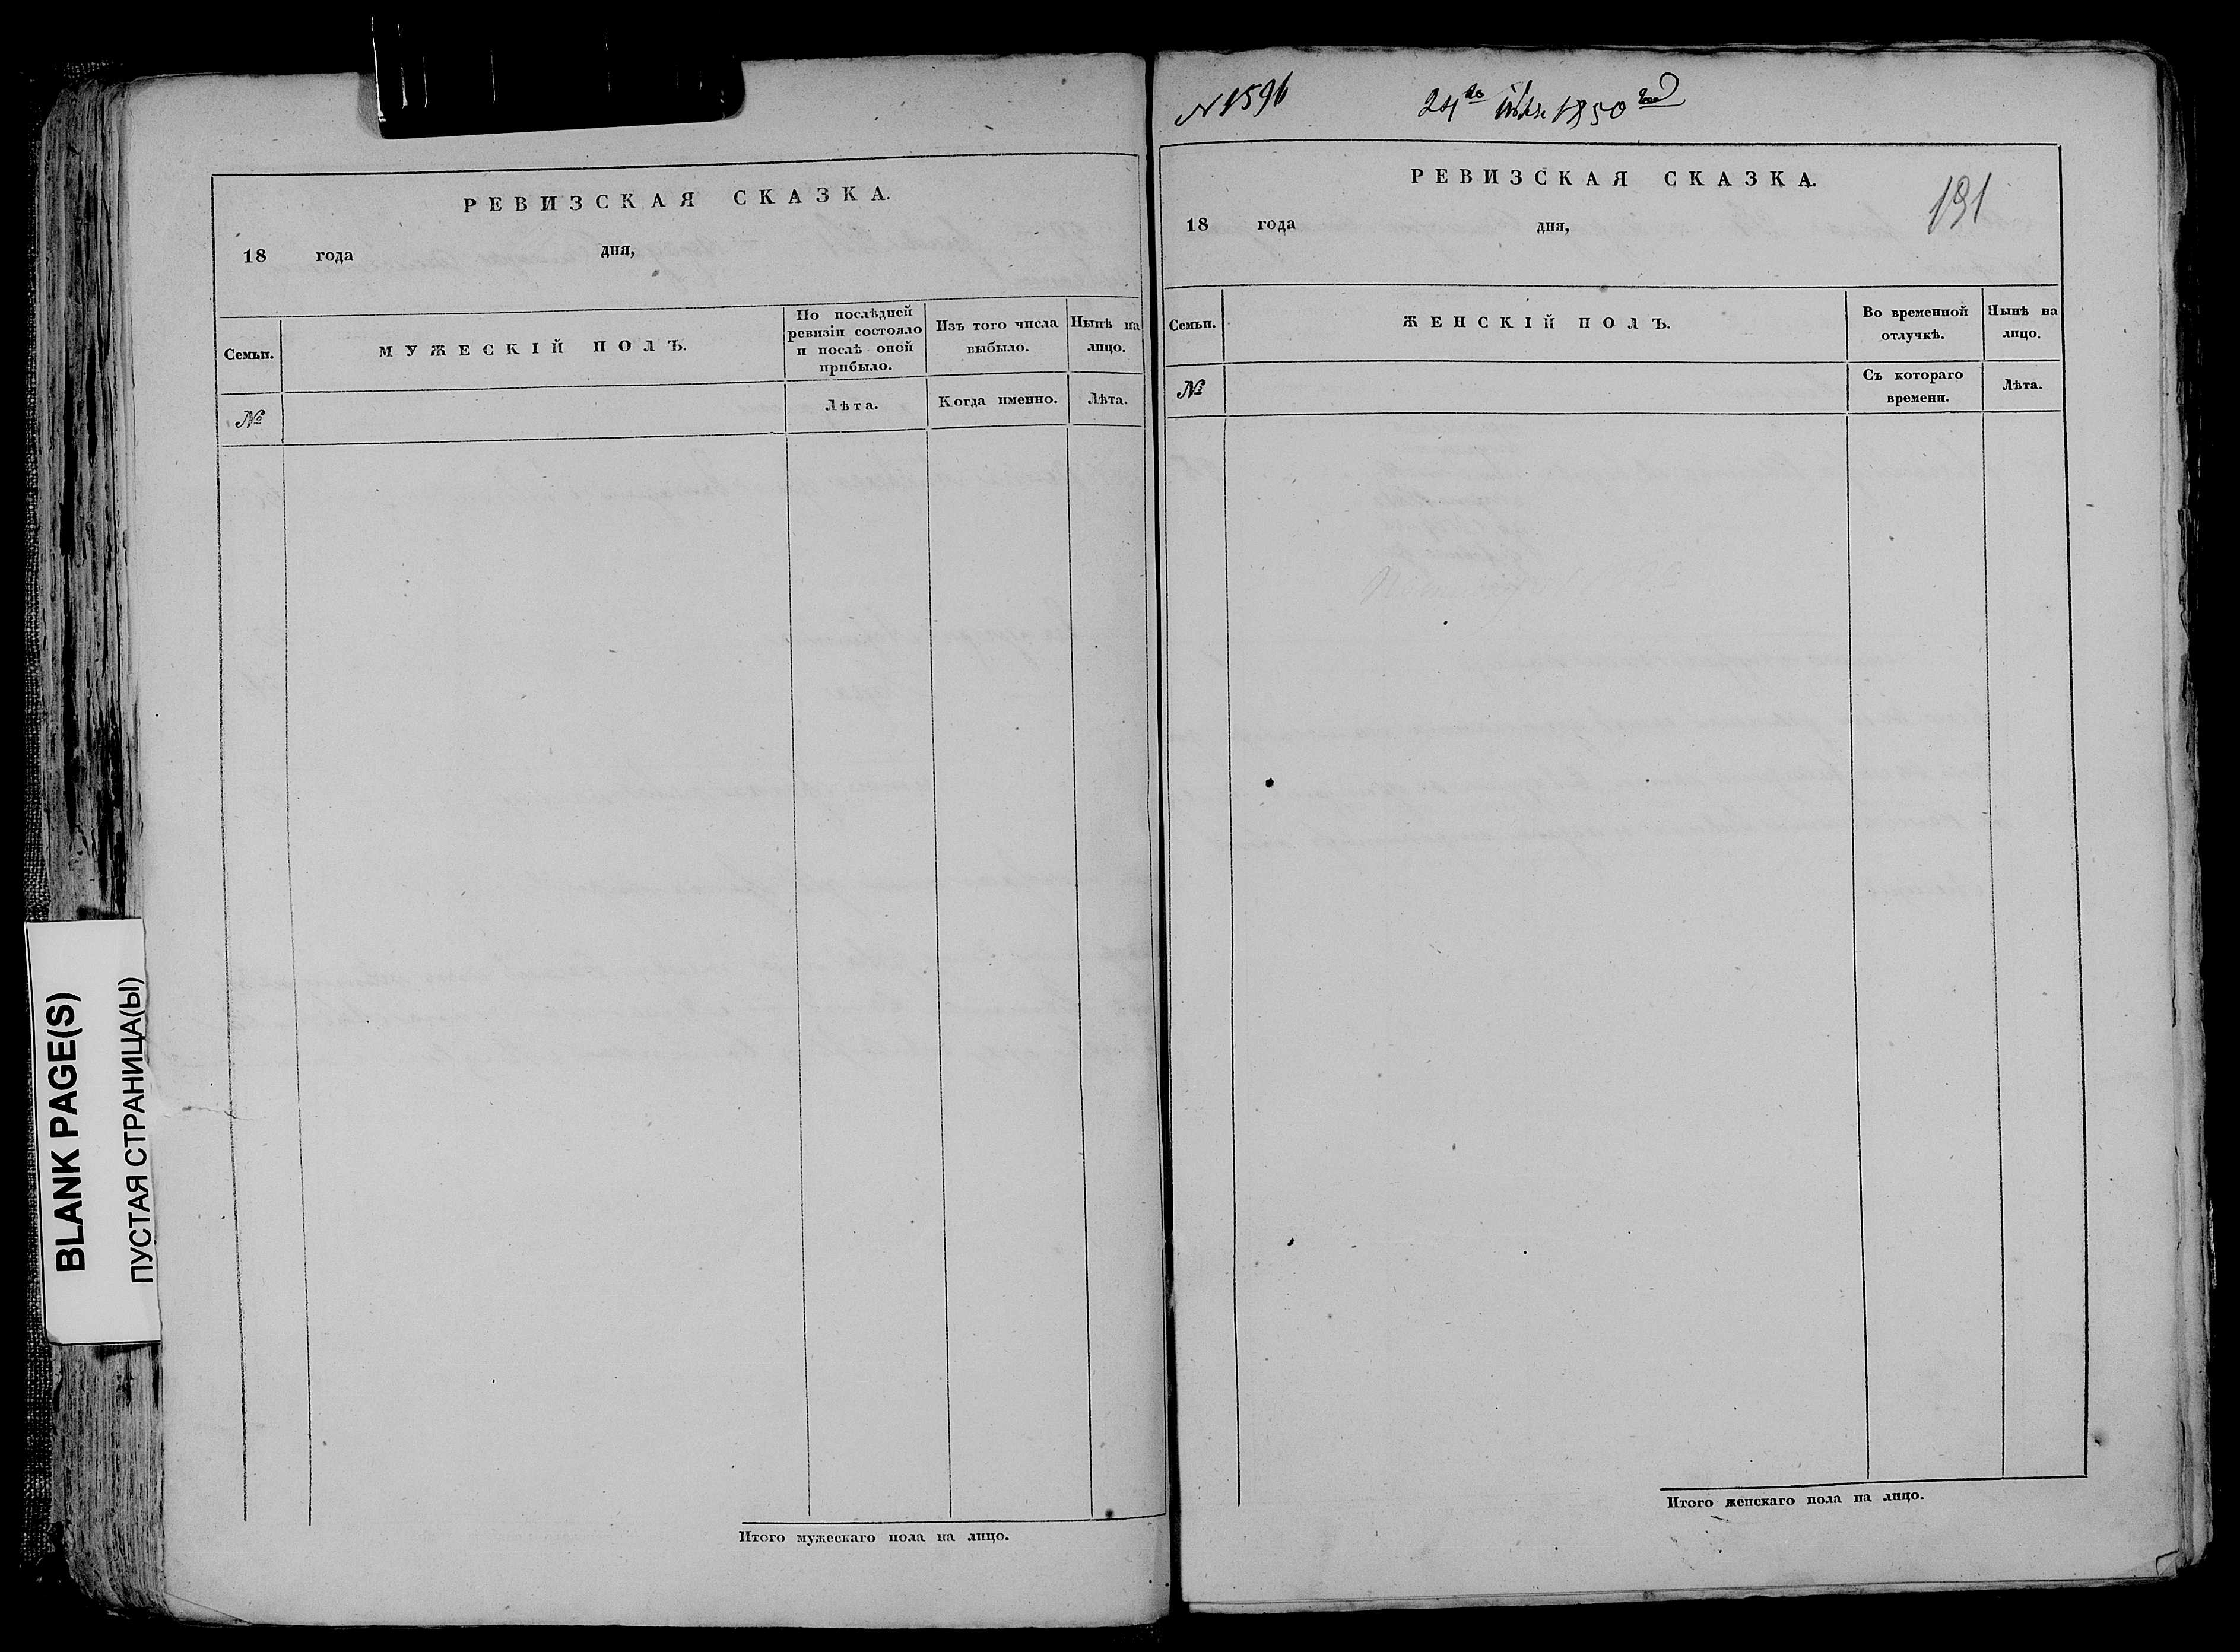 BLANK PAGE(S)
ПУСТАЯ СТРАНИЦА(Ы)
РЕВИЗСКАЯ СКАЗКА.
18 года дня,
Семьи.
МУЖЕСКІЙ ПОЛЪ.
По послѣдней
ревизіи состояло
и послѣ оной
прибыло.
Изъ того числа
выбыло.
Нынѣ на
лицо.
№
Лѣта.
Когда именно.
Лѣта.
Итого мужескаго пола на лицо.
№ 1596 24го 1850 года
191
РЕВИЗСКАЯ СКАЗКА.
18 года дня,
Семьи.
ЖЕНСКІЙ ПОЛЪ.
Во временной
отлучкѣ.
Нынѣ на
лицо.
№
Съ котораго
времени.
Лѣта.
Итого женскаго пола на лицо.